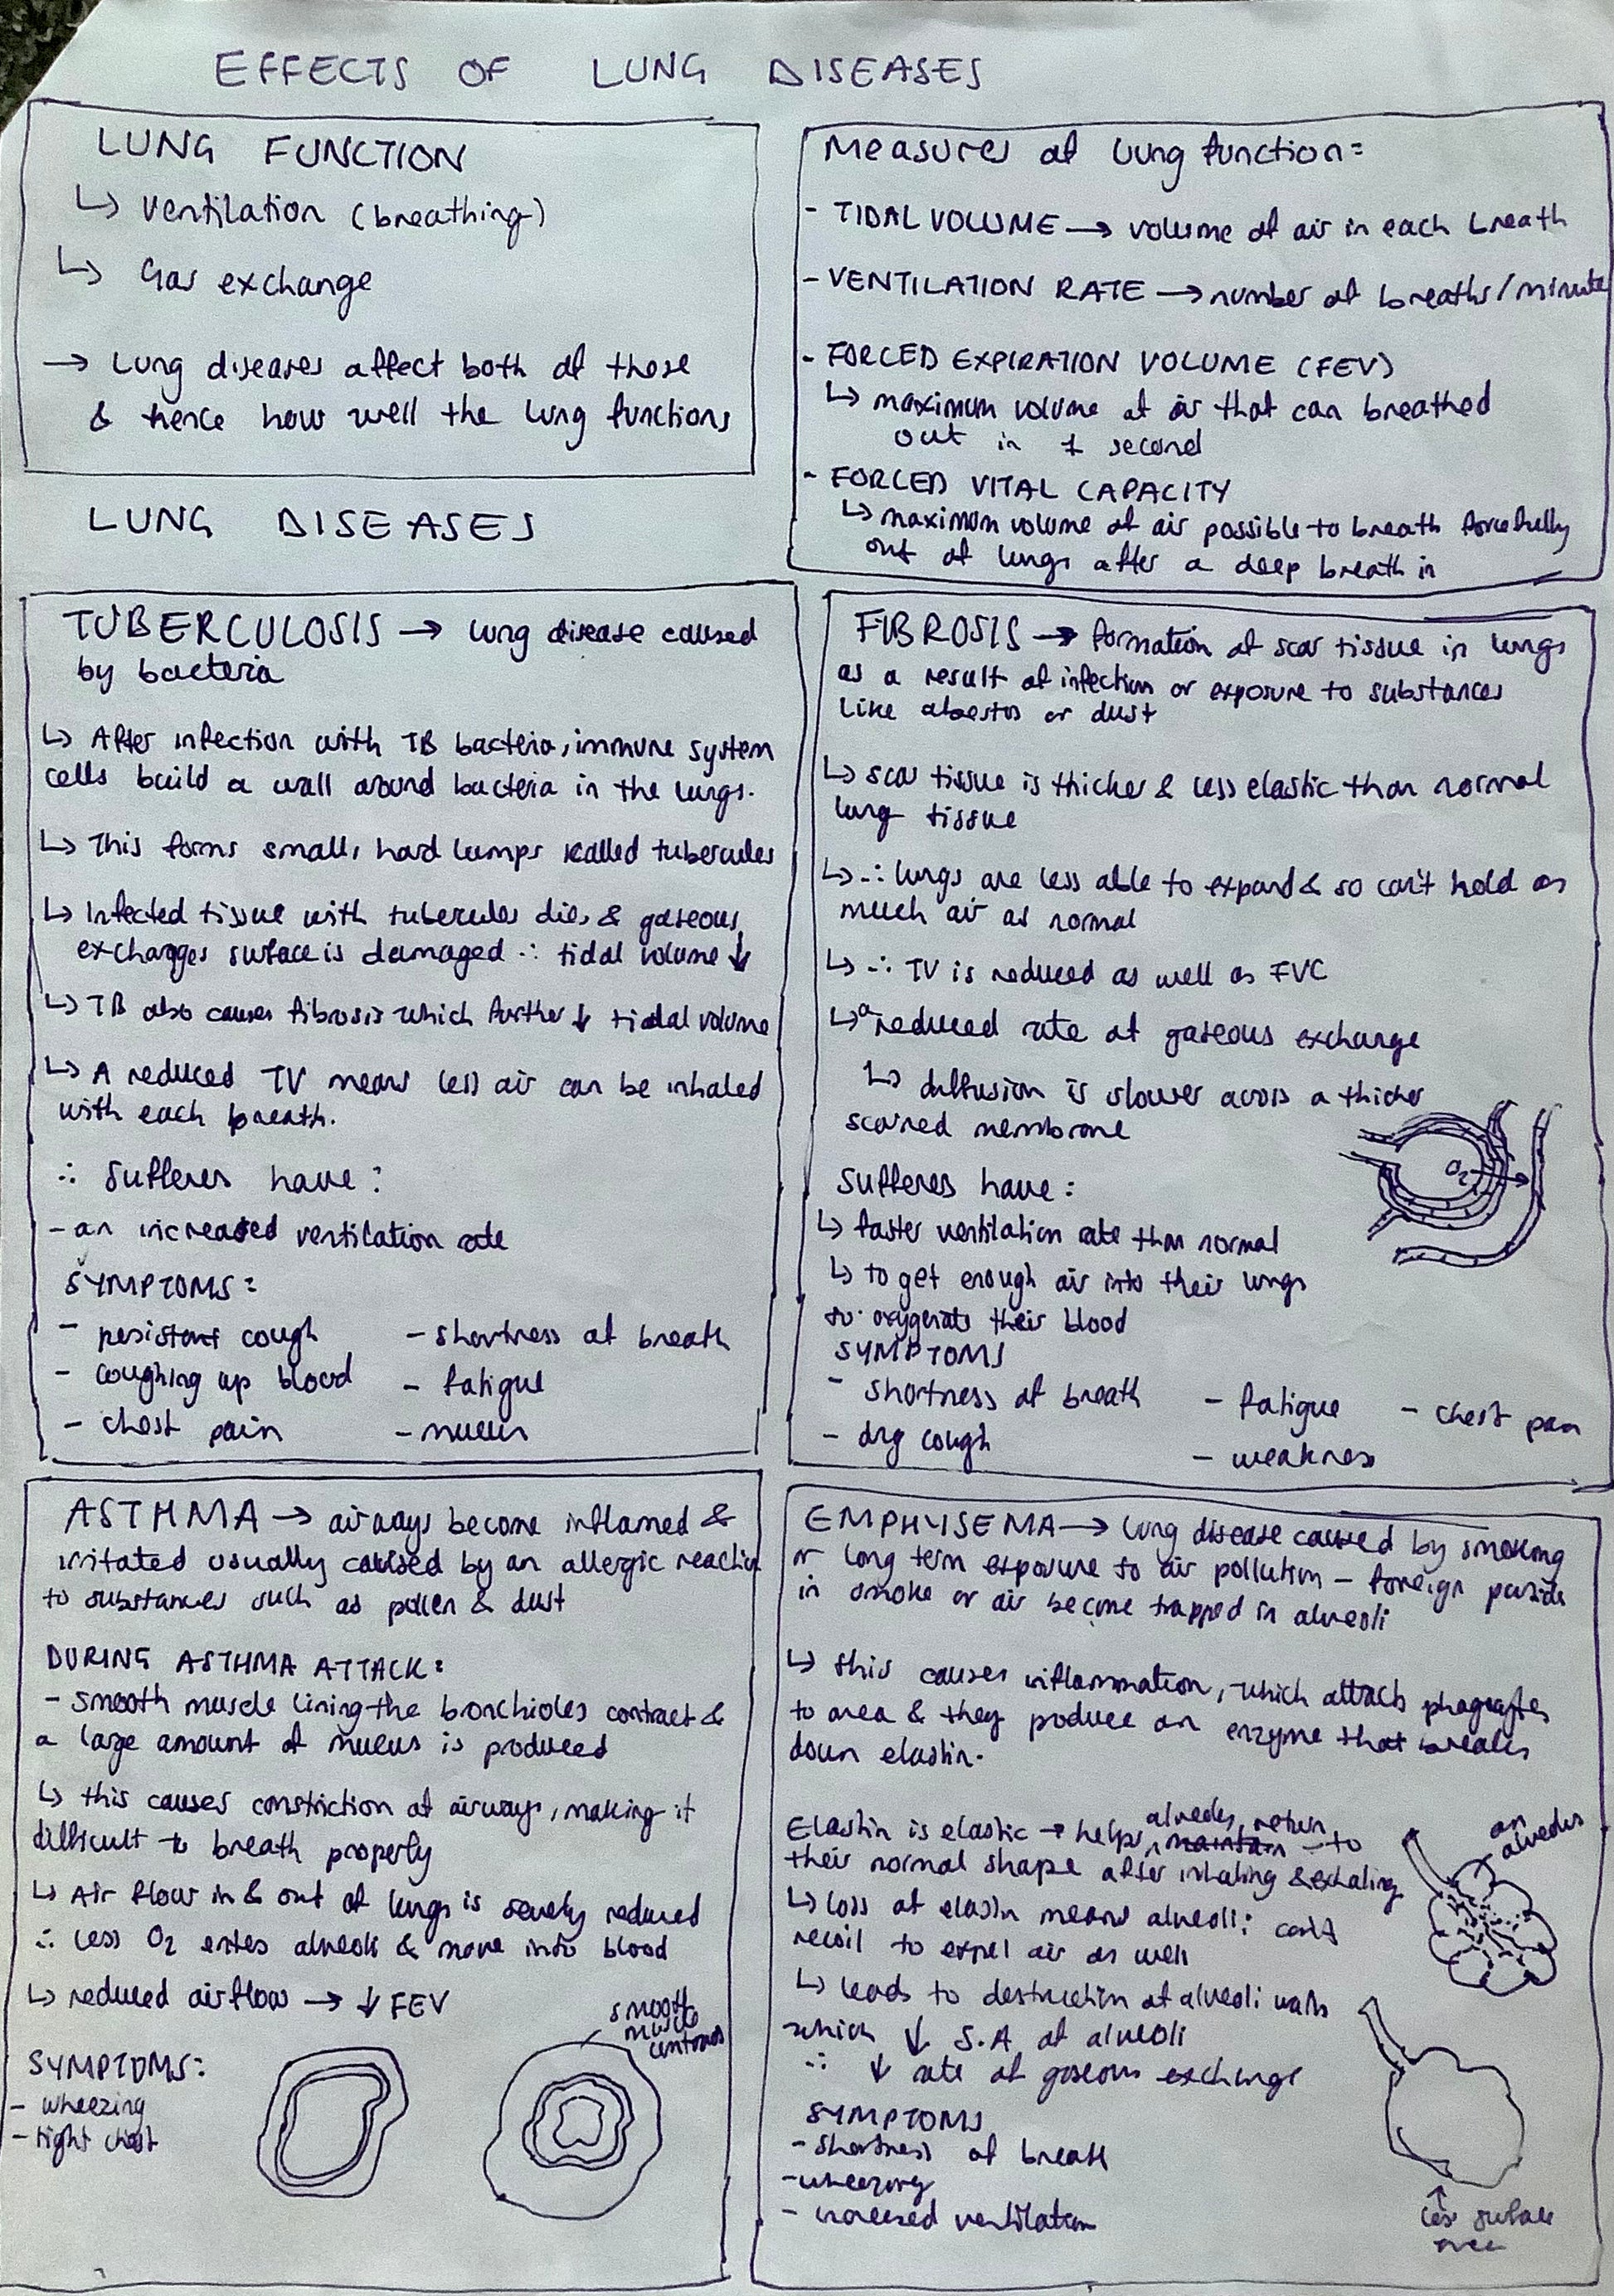 EFFECTS OF LUNG DISEASES
LUNG FUNCTION
↳ Ventilation (breathing)
↳ Gas exchange
→ Lung diseases affect both of these
& hence how well the lung functions
Measures of lung function:
- TIDAL VOLUME → volume of air in each breath
- VENTILATION RATE → number of breaths/minute
- FORCED EXPIRATION VOLUME (FEV)
↳ maximum volume of air that can breathed
out in 1 second
- FORCED VITAL CAPACITY
↳ maximum volume of air possible to breath forcefully
out of lungs after a deep breath in
LUNG DISEASES
TUBERCULOSIS → lung disease caused
by bacteria
↳ After infection with TB bacteria, immune system
cells build a wall around bacteria in the lungs.
↳ This forms small, hard lumps called tubercules
↳ Infected tissue with tubercules dies & gaseous
exchanges surface is damaged ∴ tidal volume ↓
↳ TB also causes fibrosis which further ↓ tidal volume
↳ A reduced TV means less air can be inhaled
with each breath.
∴ sufferers have:
- an increased ventilation rate
SYMPTOMS:
- persistant cough
- coughing up blood
- chest pain
- shortness of breath
- fatigue
- mucus
FIBROSIS → formation of scar tissue in lungs
as a result of infection or exposure to substances
like abestos or dust
↳ scar tissue is thicker & less elastic than normal
lung tissue
↳ ∴ lungs are less able to expand & so can't hold as
much air as normal
↳ ∴ TV is reduced as well as FVC
↳ a reduced rate of gaseous exchange
↳ diffusion is slower across a thicker
scarred membrane
O₂
sufferes have:
↳ faster ventilation rate than normal
↳ to get enough air into their lungs
to oxygenate their blood
SYMPTOMS
- shortness of breath
- dry cough
- fatigue
- weakness
- chest pain
ASTHMA → airways become inflamed &
irritated usually caused by an allergic reaction
to substances such as pollen & dust
DURING ASTHMA ATTACK:
- smooth muscle lining the bronchioles contract &
a large amount of mucus is produced
↳ this causes constriction of airways, making it
difficult to breath properly
↳ Air flow in & out of lungs is severly reduced
∴ less O₂ enters alveoli & move into blood
↳ reduced airflow → ↓ FEV
SYMPTOMS:
- wheezing
- tight chest
smooth
muscle
contracts
EMPHYSEMA → lung disease caused by smoking
or long term exposure to air pollution - foreign
in smoke or air become trapped in alveoli
↳ this causes inflammation, which phagocytes
to area & they produce an enzyme that breaks
down elastin.
Elastin is elastic → helps alveoles return to
their normal shape after inhaling & exhaling
↳ loss of elastin means alveoli: can't
recoil to expel air as well
↳ leads to destruction of alveoli walls
which ↓ S.A of alveoli
∴ ↓ rate of gaseous exchange
SYMPTOMS
- shortness of breath
- wheezing
- increased ventilation
an
alveolus
less surface
area